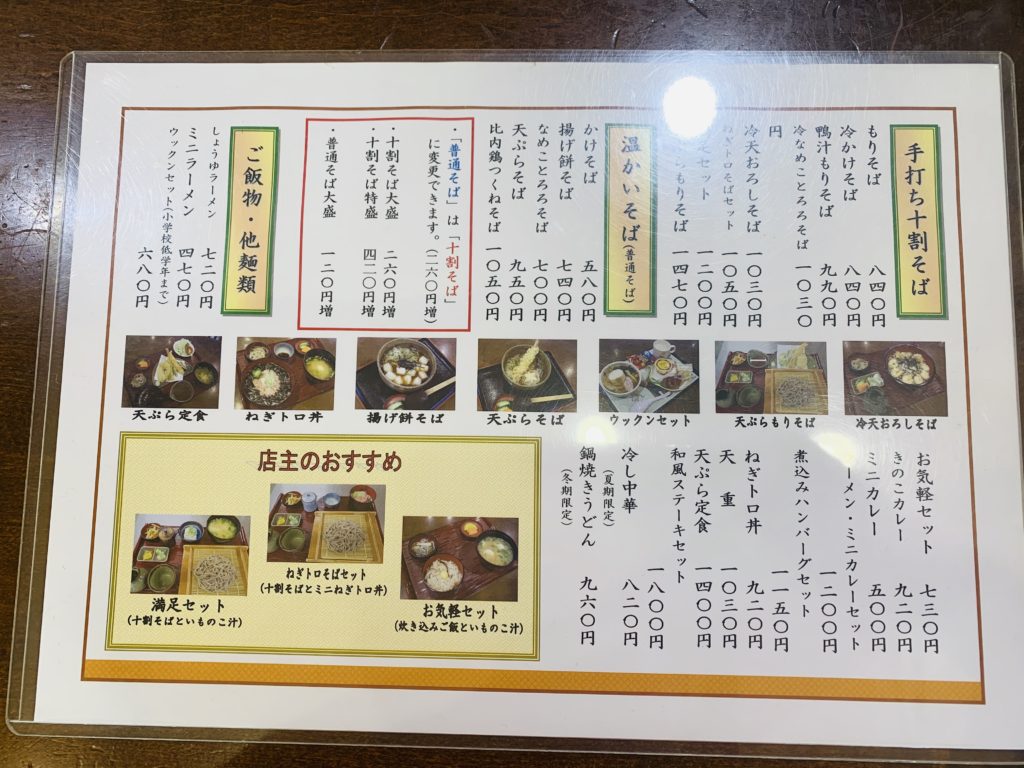 手打ち十割そば
もりそば 八四〇円
冷かけそば 八四〇円
鴨汁もりそば 九九〇円
冷なめことろろそば 一〇三〇
円
冷天おろしそば 一〇三〇円
ねぎトロそばセット 一〇五〇円
セット 一二〇〇円
もりそば 一四七〇円
温かいそば(普通そば)
かけそば 五八〇円
揚げ餅そば 七四〇円
なめことろろそば 七〇〇円
天ぷらそば 九五〇円
比内鶏つくねそば 一〇五〇円
・「普通そば」は「十割そば」
に変更できます。(二六〇円増)
・十割そば大盛 二六〇円増
・十割そば特盛 四二〇円増
・普通そば大盛 一二〇円増
ご飯物・他麺類
しょうゆラーメン 七二〇円
ミニラーメン 四七〇円
ウックンセット(小学校低学年まで)
六八〇円
冷天おろしそば
天ぷらもりそば
ウックンセット
天ぷらそば
揚げ餅そば
ねぎトロ丼
天ぷら定食
お気軽セット 七三〇円
きのこカレー 九二〇円
ミニカレー 五〇〇円
ーメン・ミニカレーセット
一二〇〇円
煮込みハンバーグセット
一一五〇円
ねぎトロ丼 九二〇円
天重 一〇三〇円
天ぷら定食 一四〇〇円
和風ステーキセット
一八〇〇円
(夏期限定)
冷し中華 八二〇円
鍋焼きうどん 九六〇円
(冬期限定)
店主のおすすめ
満足セット
(十割そばといものこ汁)
ねぎトロそばセット
(十割そばとミニねぎトロ丼)
お気軽セット
(炊き込みご飯といものこ汁)